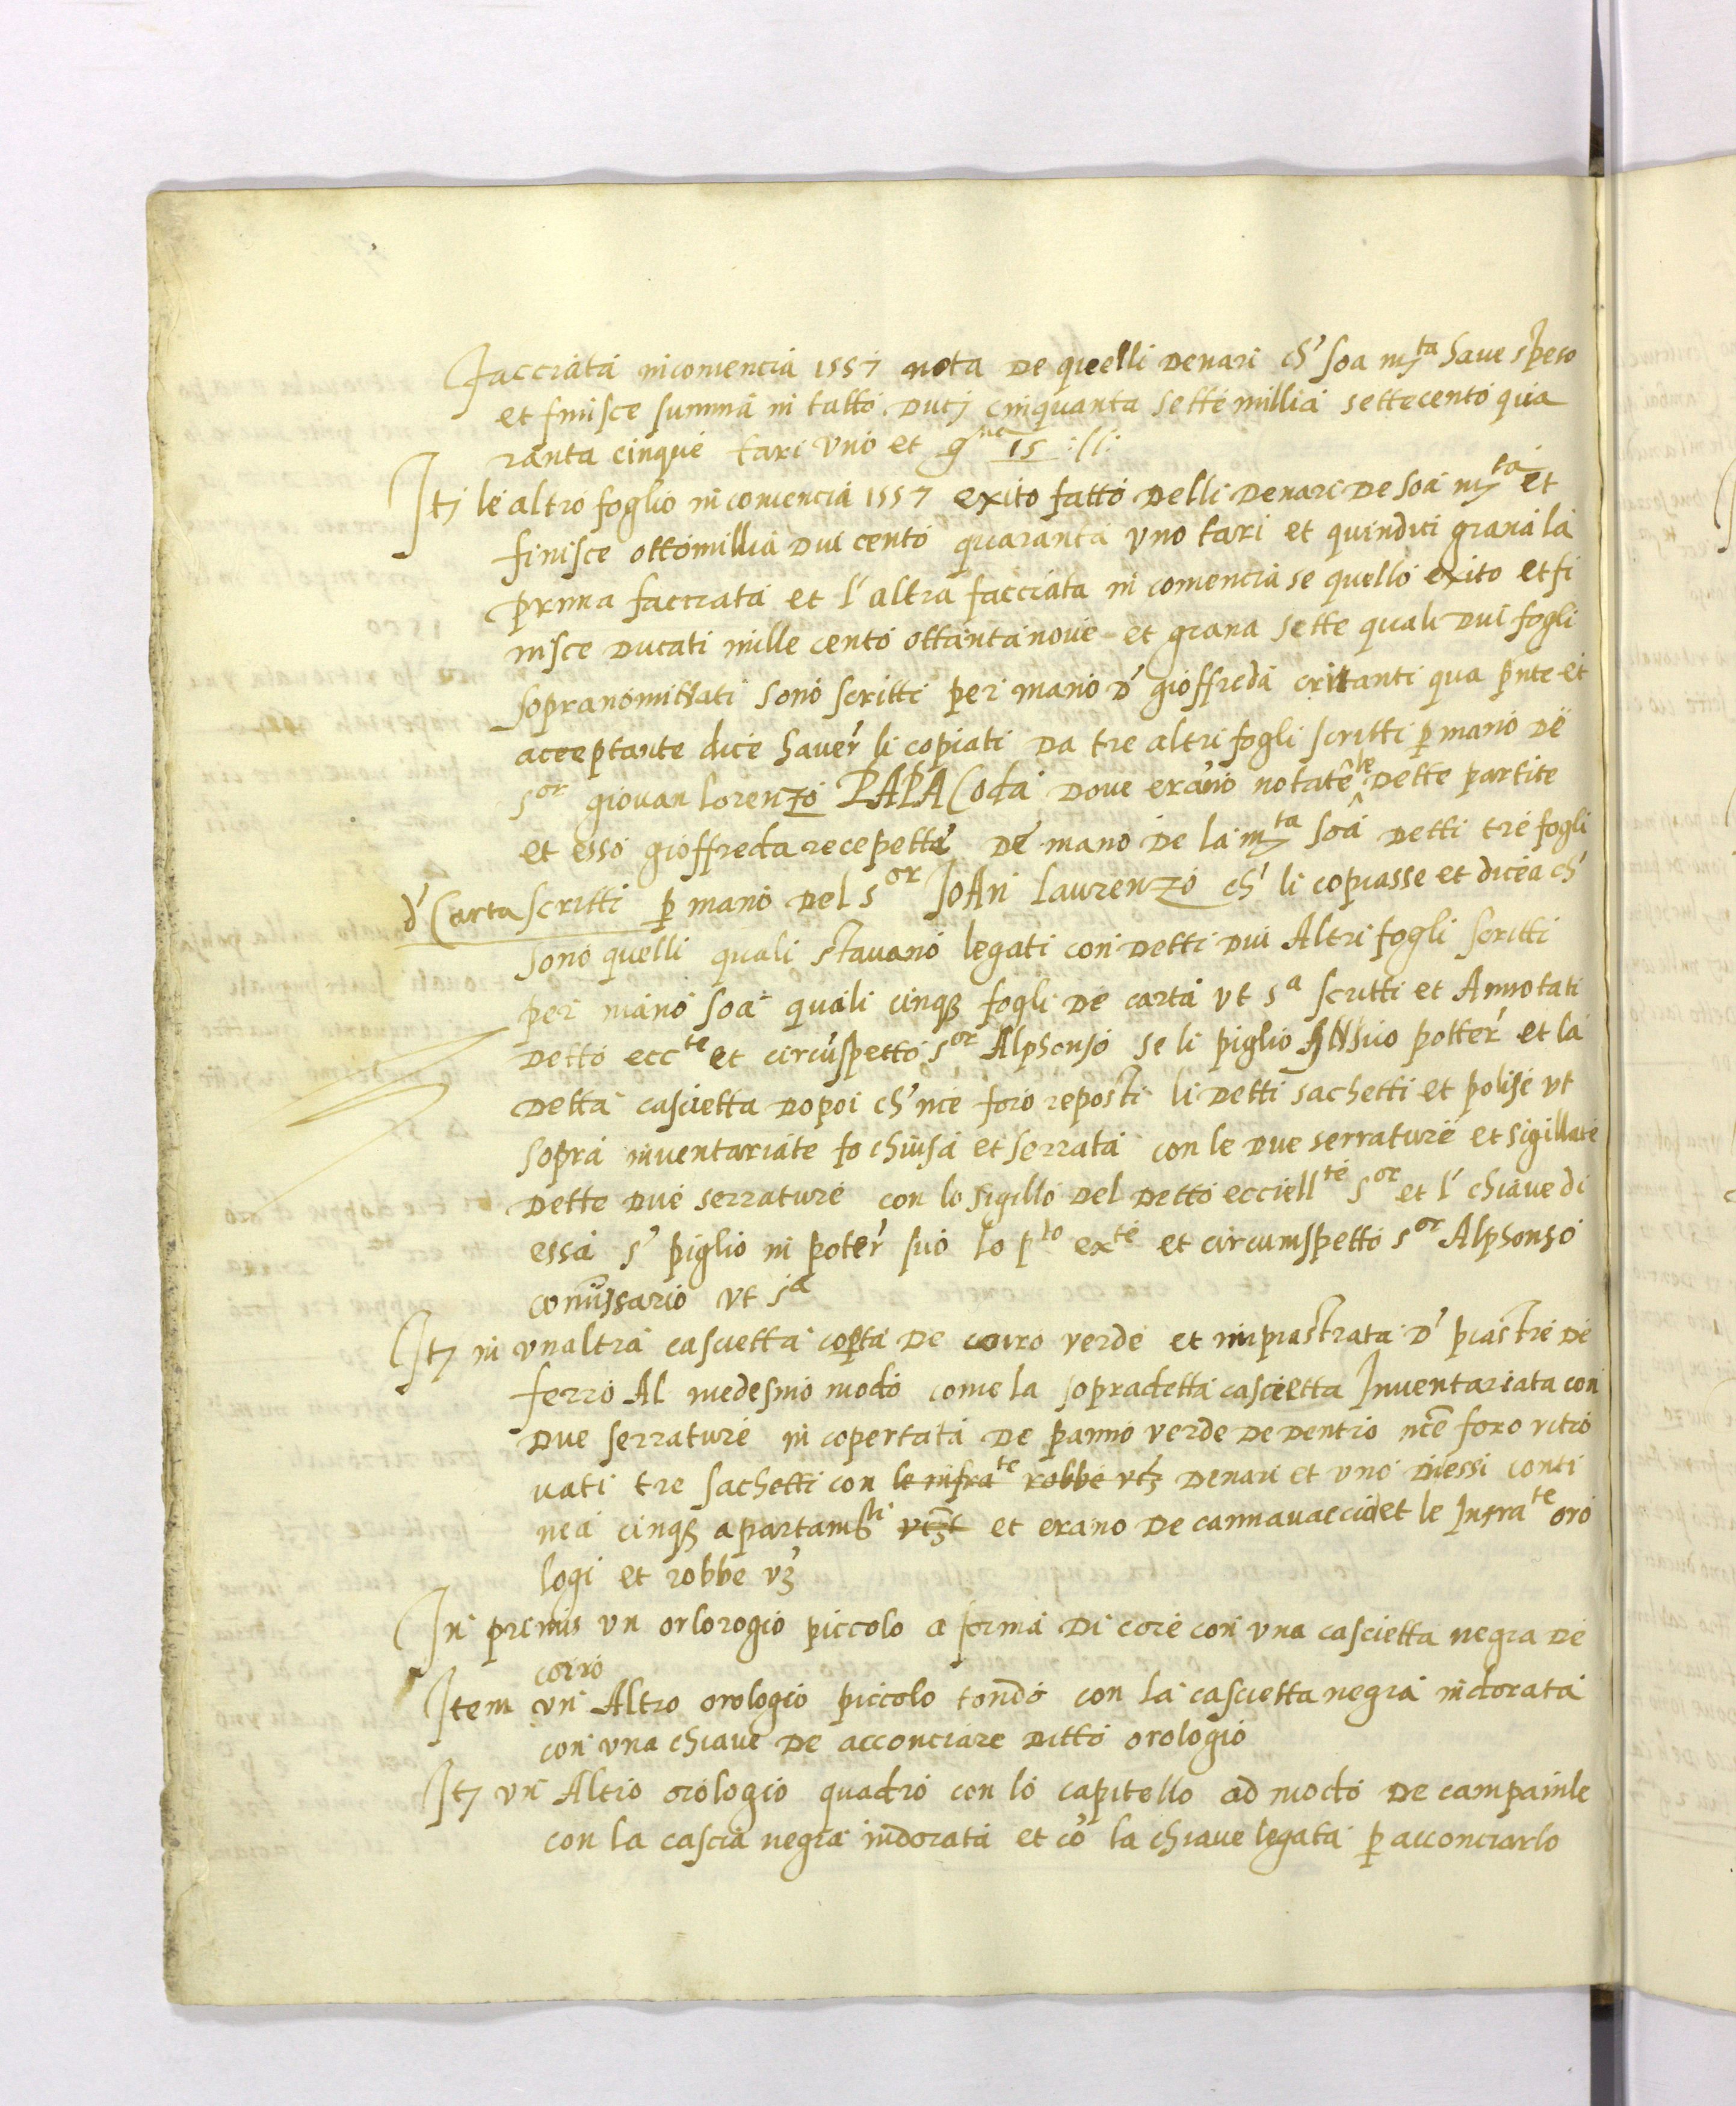 facciata incomencia 1557 nota de quelli denari ch' soa m.ta have speso
et finisce summa in tutto ducj cinquanta sette millia settecento qua
ranta cinque tari uno et g.na 15 :ll:
Itj le altro foglio incomencia 1557 exito fatto delli denari de soa m.ta et
finisce ottomillia dui cento quaranta uno tari et quindici grana la
prima facciata et l'altra facciata in comencia se quello exito et fi
nisce ducati mille cento ottantanove et grana sette quali dui fogli
sopranominati sono scritti per mano d' gioffreda qua pnte et
aceeptante dice haver' li copiati da tre altri fogli scritti p mano de
s.or giovan lorenzo PAPACoda dove erano notate le dette partite
et esso gioffreda recepette de mano de la m.ta soa detti tre fogli
d' Carta scritti p mano del s.or IoAn Laurenzo ch' li copiasse et dicea ch'
sono quelli quali stavano legati con detti dui Altri fogli scritti
per mano soa quali cinq3 fogli de carta ut s.a scritti et Annotati
detto ecc.te et circuspetto s.or Alphonso se li piglio IN suo potter' et la
detta cascietta dopoi ch' nce foro reposti li detti sachetti et polise ut
sopra inventariate fo chiusa et serrata con le due serrature et sigillate
dette due serrature con lo sigillo del detto ecciell.te s.or et l' chiave di
essa s' piglio in poter' suo lo p.to ex.te et circumspetto s.or Alphonso
comissario ut s.a
Itj in unaltra cascietta coperta de coiro verde et impiastrata d' piastre de
ferro Al medesmo modo come la sopradetta cascietta Inventariata con
due serrature in copertata de panno verde de dentro nce foro ritro
vati tre sachetti con le infra.te robbe vz denari et uno diessi conti
nea cinq3 apartam.ti et erano de cannavaccio et le Infra.te oro
logi et robbe vz
In primis un orlorogio piccolo a forma di core con una cascietta negra de
coiro
Item un Altro orologio piccolo tondo con la cascietta negra indorata
con una chiave de acconciare ditto orologio
Itj un Altro orologio quadro con lo capitello ad modo de campanile
con la cascia negra indorata et co' la chiave legata p acconciarlo